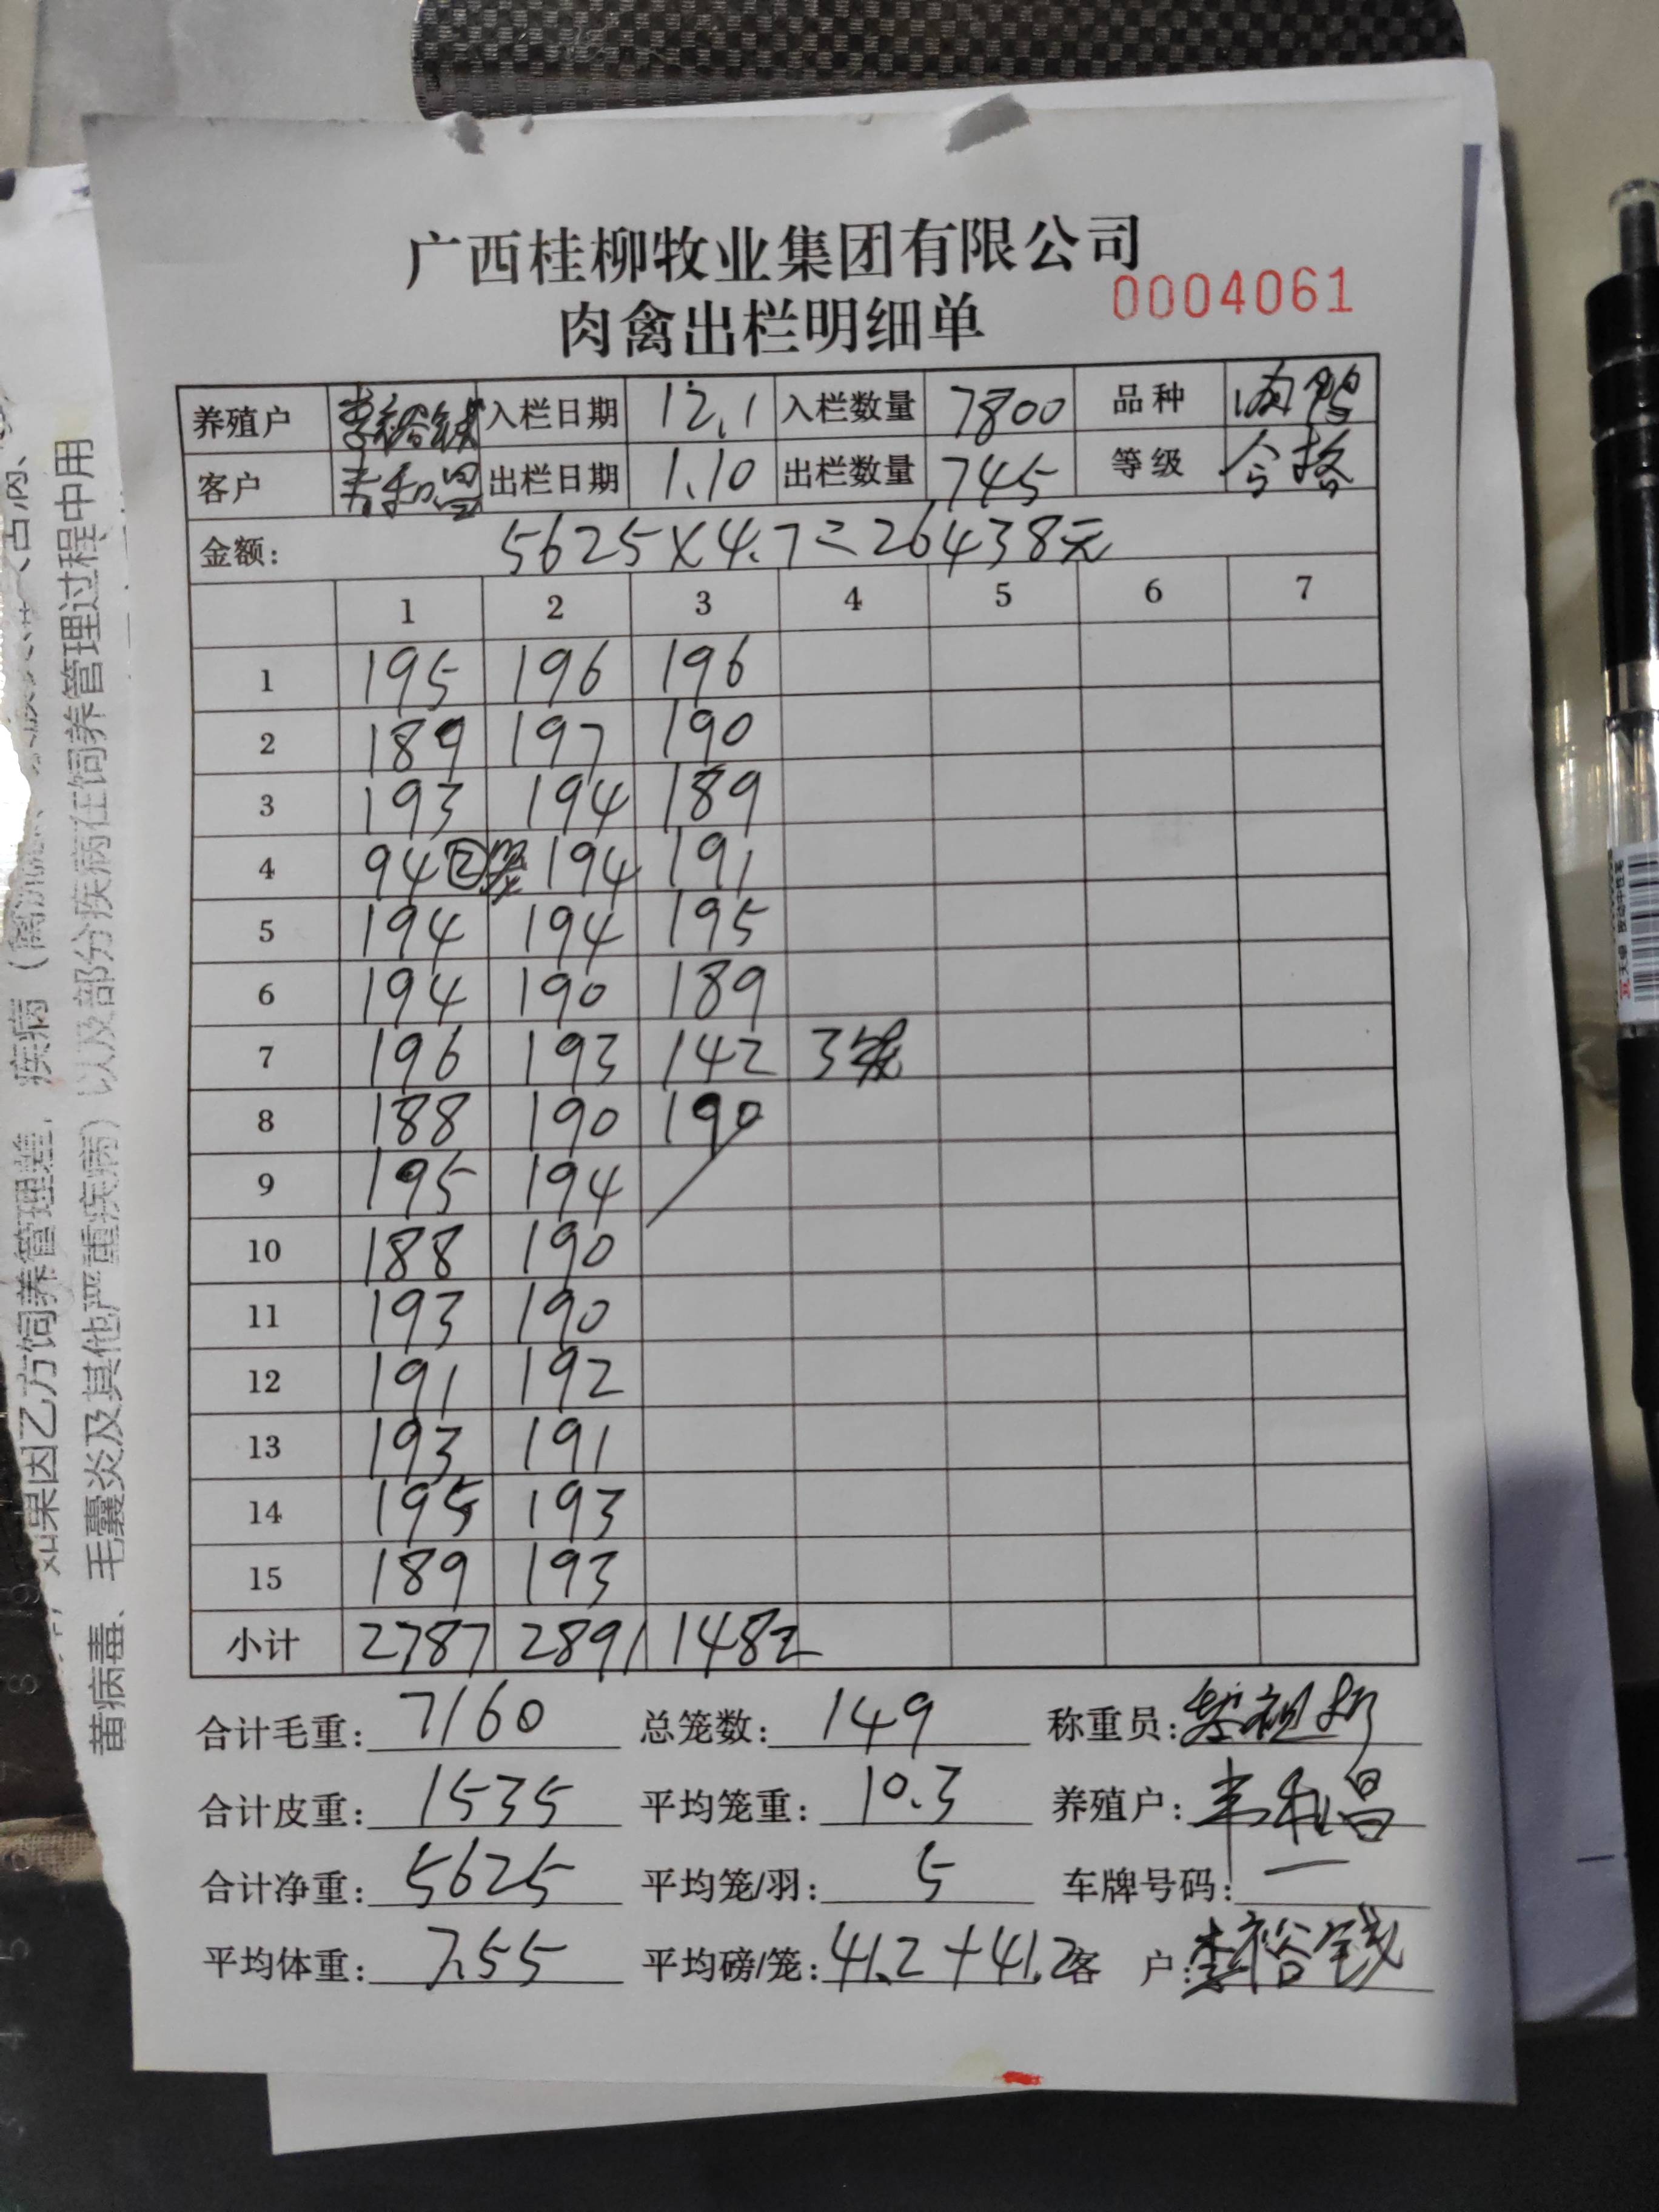 广西桂柳牧业集团有限公司
肉禽出栏明细单 0004061
养殖户 李裕钱 入栏日期 12.1 入栏数量 7800 品种
客户 出栏日期 1.10 出栏数量 745 等级 合格
金额: 5625×4.7=26438元
1 2 3 4 5 6 7
1 195 196 196
2 189 197 190
3 193 194 189
4 94② 194 191
5 194 194 195
6 194 190 189
7 196 193 142 3笼
8 188 190 190
9 195 194
10 188 190
11 193 190
12 191 192
13 193 191
14 195 193
15 189 193
小计 2787 2891 1482
合计毛重: 7160 总笼数: 149 称重员:
合计皮重: 1535 平均笼重: 10.3 养殖户:
合计净重: 5625 平均笼/羽: 5 车牌号码: —
平均体重: 7.55 平均磅/笼: 41.2+41.2 客 户: 李裕钱
如果因乙方饲养管理差,疾病(禽流感、
黄病毒、毛囊炎及其他严重疾病)以及部分疾病在饲养管理过程中用